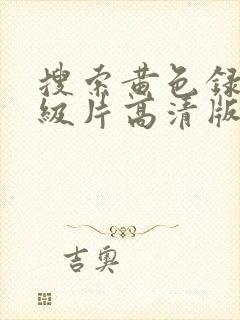 搜索黄色录
级片高清版
吉奥